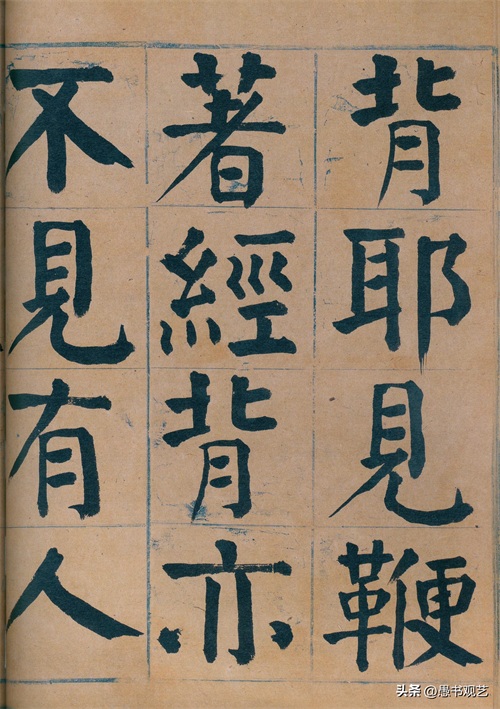 背耶見鞭
著經背亦
不見有人
头条 @愚书观艺